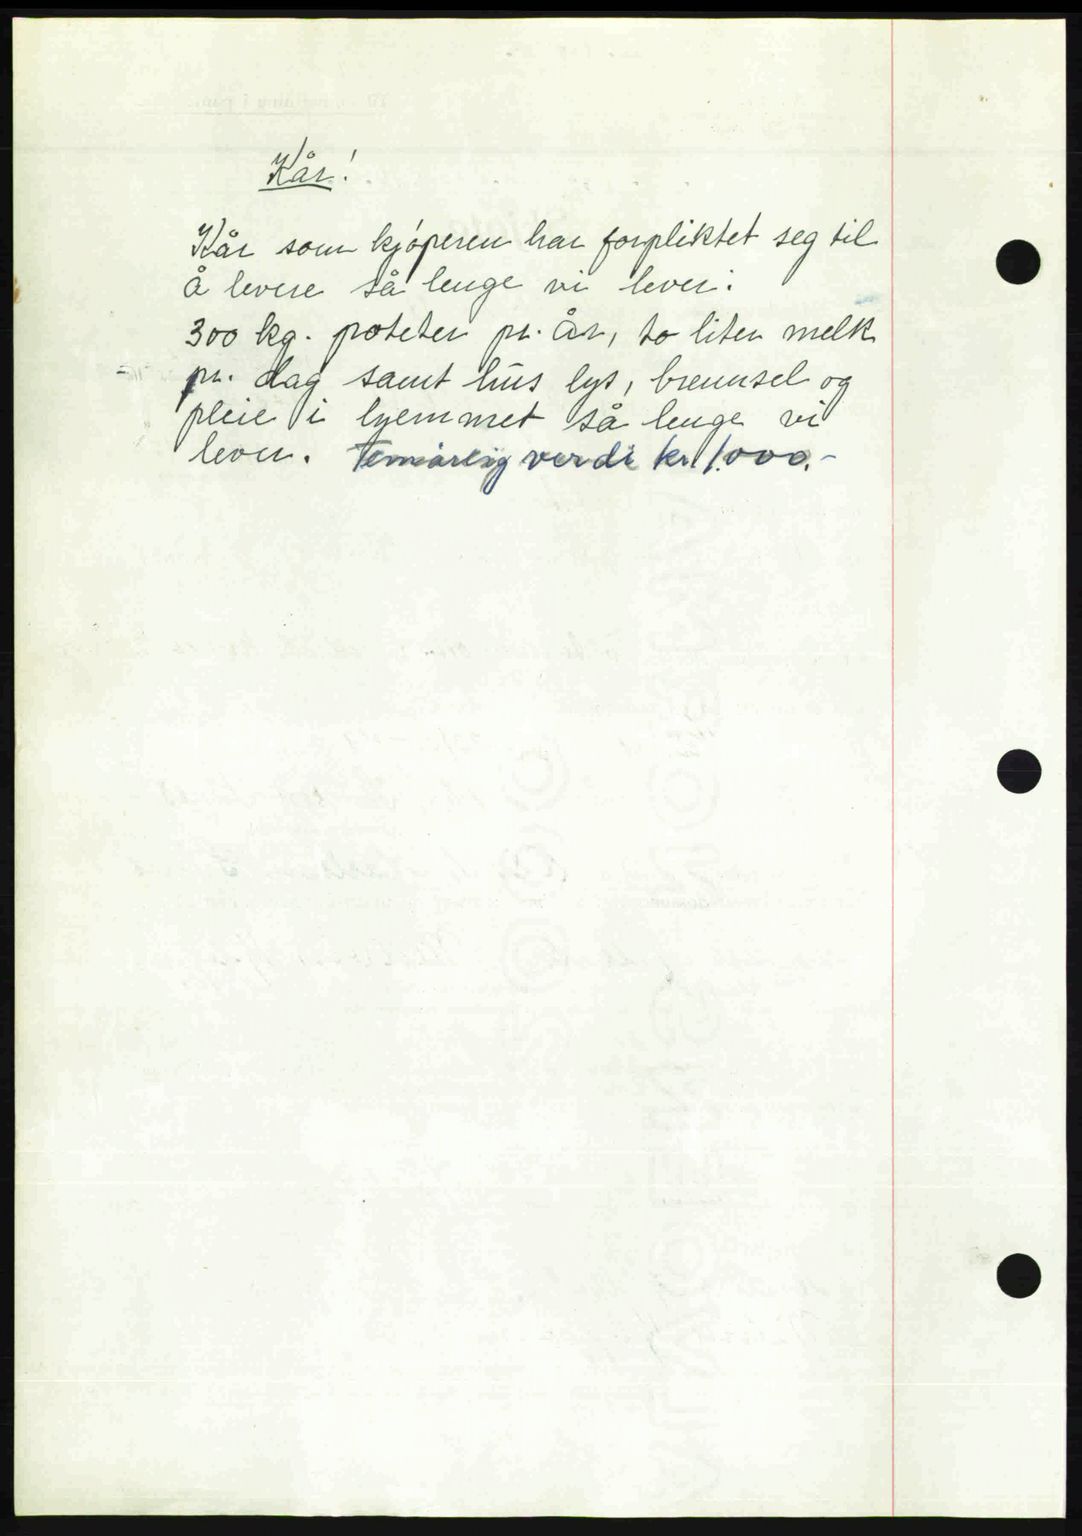 Kår!
Kår som kjøperen har forpliktet seg til
å levere så lenge vi lever:
300 kg. poteter pr. År, to liter melk
pr. dag samt hus lys, brennsel og
pleie i hjemmet så lenge vi
lever. Femårlig verdi kr. 1.000.-